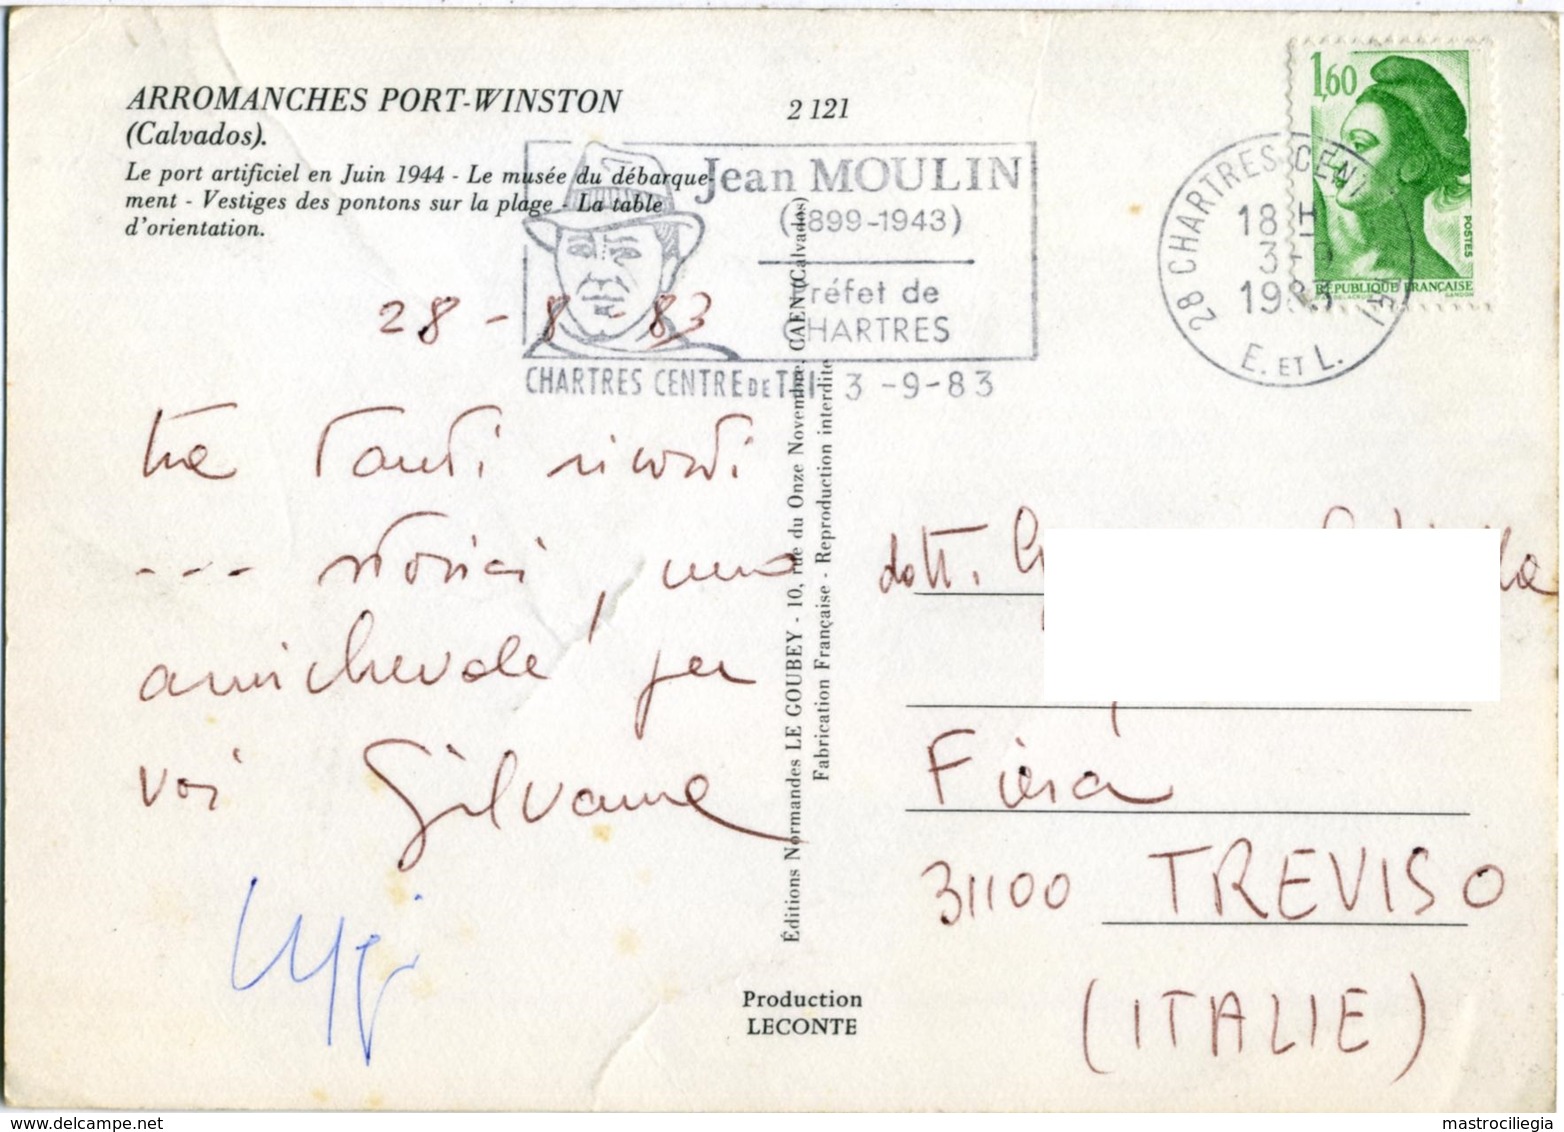 ARROMANCHES PORT-WINSTON
(Calvados).
Le port artificiel en Juin 1944 - Le musée du débarque-
ment - Vestiges des pontons sur la plage - La table
d'orientation.
2 121
Jean MOULIN
(1899-1943)
Préfet de
CHARTRES
CHARTRES CENTRE DE TRI 3-9-83
28 CHARTRES CENTRE TRI
18 H
3-9
1983
E. ET L.
1,60
POSTES
RÉPUBLIQUE FRANÇAISE
DELACROIX GANDON
28 - 8 83
tra tanti ricordi
--- storici, uno
amichevole per
voi Gilvana
Luigi
Éditions Normandes LE GOUBEY - 10, rue du Onze Novembre, CAEN (Calvados)
Fabrication Française - Reproduction interdite
Production
LECONTE
dott. G
Fiera
31100 TREVISO
(ITALIE)
www.delcampe.net
mastrociliegia